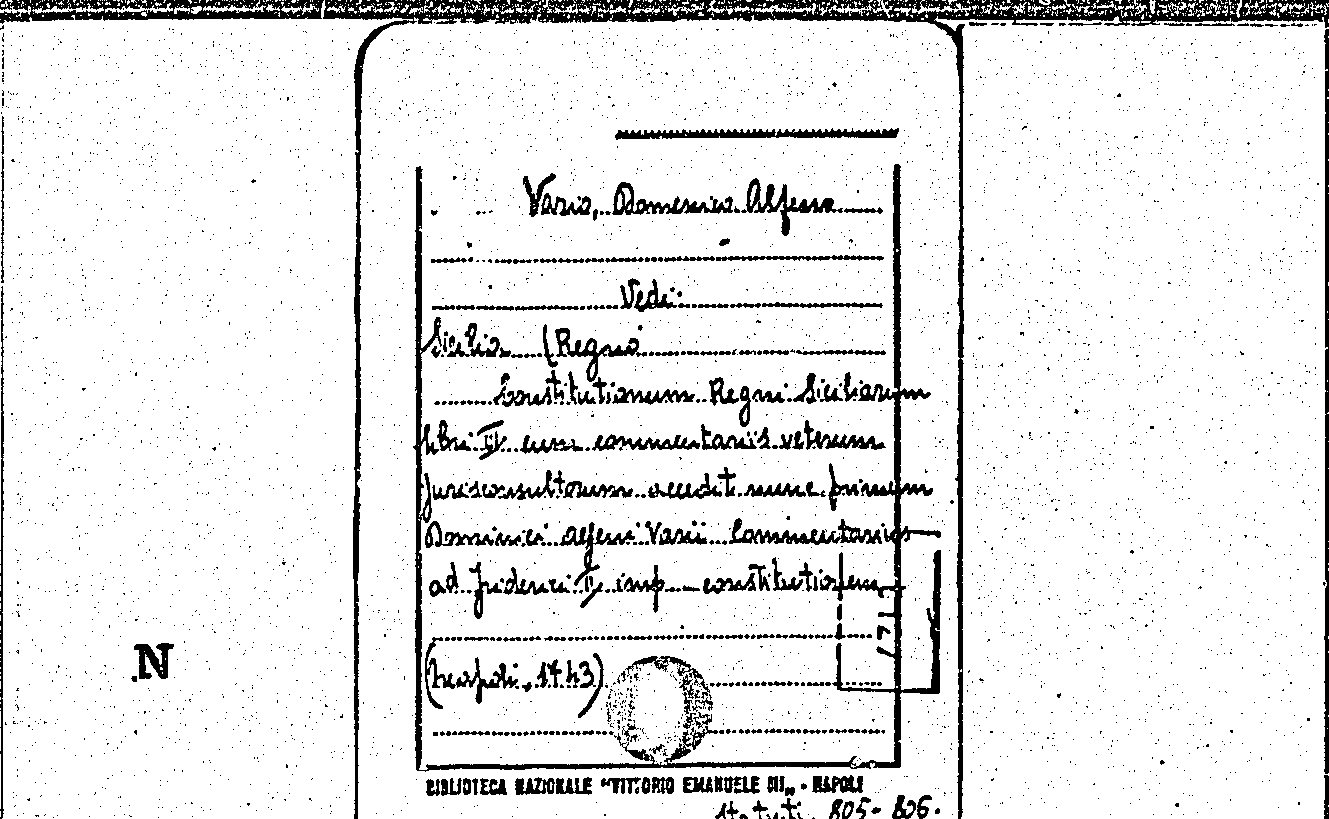 Vario, Domenico Alfeno
Vedi:
Sicilia (Regno
Constitutionum Regni Siciliarum
libri III cum commentariis veterum
Jurisconsultorum accedit nunc primum
Dominici Alfeni Varii Commentarius
ad Friderici II imp. constitutionem
(Neapoli, 1743)
N
BIBLIOTECA NAZIONALE "VITTORIO EMANUELE III„ - NAPOLI
Statuti 805-806.